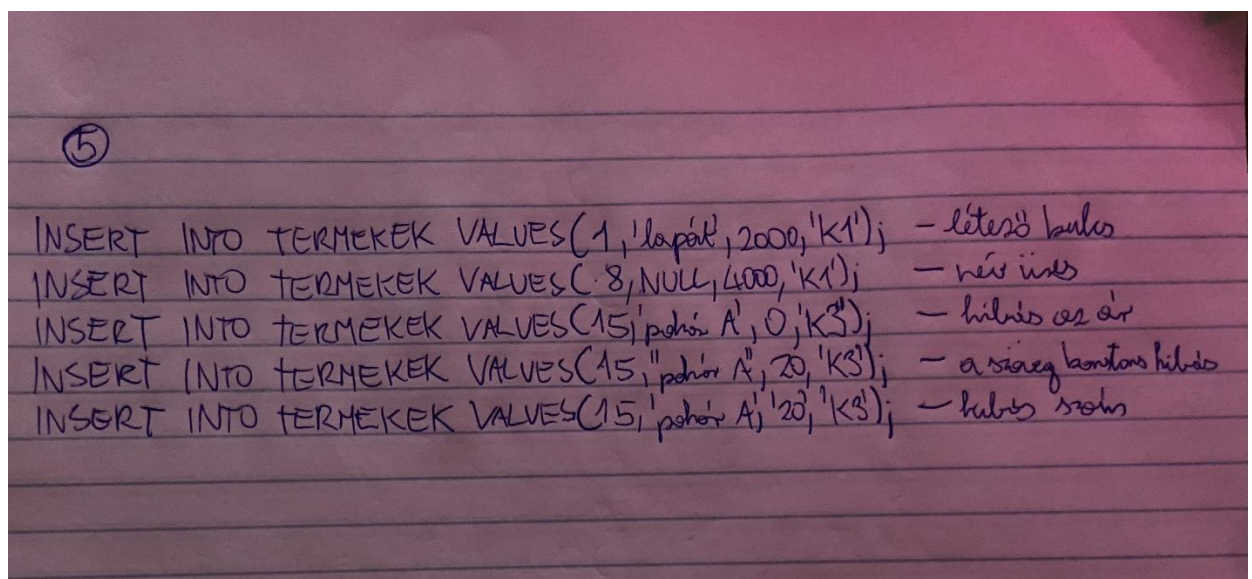 5
INSERT INTO TERMEKEK VALUES(1,'lapát',2000,'K1'); - létező kulcs
INSERT INTO TERMEKEK VALUES(8,NULL,4000,'K1'); - név üres
INSERT INTO TERMEKEK VALUES(15,'pohár A',0,'K3'); - hibás az ár
INSERT INTO TERMEKEK VALUES(15,"pohár A",20,'K3'); - a szöveg konstans hibás
INSERT INTO TERMEKEK VALUES(15,'pohár A','20','K3'); - hibás szám